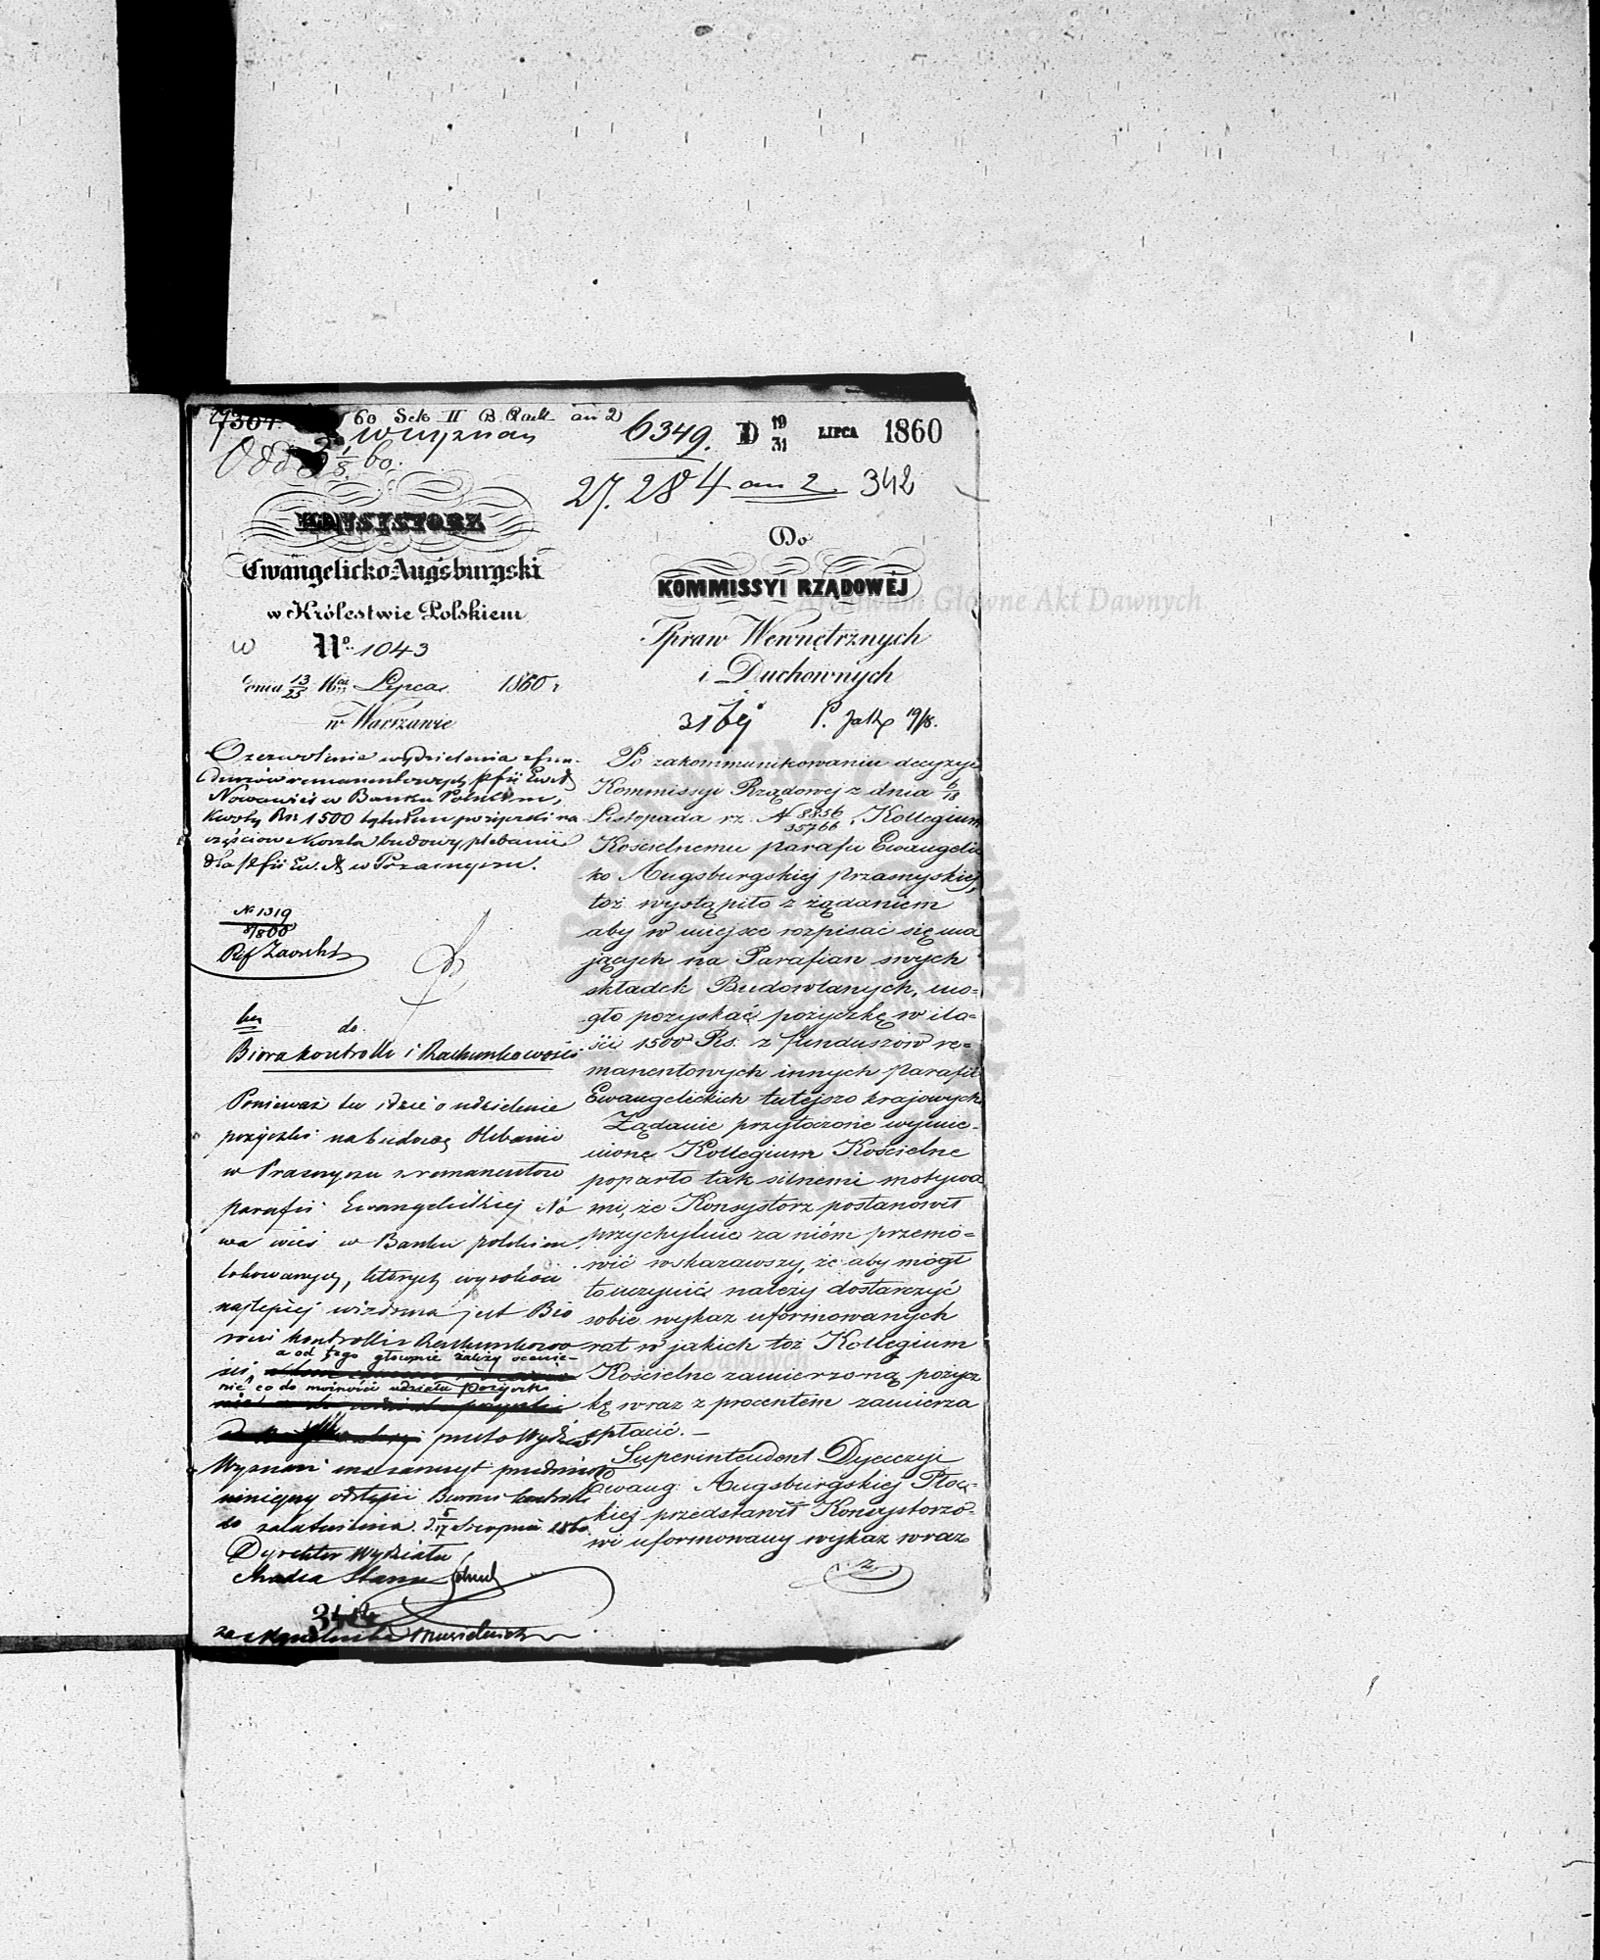 60 Sek II B. Rach an 2
Wyznań
6349. D 19/31 LIPCA 1860
27.284 an 2. 342
KONSYSTORZ
Ewangelicko-Augsburgski
w Królestwie Polskiem
No. 1043
dnia 13/25 Mca Lipca 1860 r
w Warszawie
O zezwolenie wydzielenia z fun-
duszów remanentowych pfii Ew A
Nowawieś w Banku Polskim,
kwoty Rs 1500 tytułem pożyczki na
częściowe koszta budowy plebanii
dla pfii Ew. A. w Przasnyszu.
No 1319
do
Biura kontrolli i Rachunkowości
Ponieważ tu idzie o udzielenie
pożyczki na budowę Plebanii
w Prasnyszu z remanentów
parafii Ewangelickiej No
wa wieś w Banku polskim
lokowanych, których wysokość
najlepiej wiadomą jest Biu
rowi kontrolli i Rachunkowo
ści, a od tego głównie zależy ocenie-
nie, co do możności udziału pożyczki
przeto Wydział
Wyznań ma zaszczyt przedmiot
niniejszy odstąpić Biurowi kontrolli
do załatwienia. d. 5/17 Sierpnia 1860
Dyrektor Wydziału
Radca Stanu
za Naczelnika
Do
KOMMISSYI RZĄDOWEJ
Spraw Wewnętrznych
i Duchownych
Po zakommunikowaniu decyzyi
Kommissyi Rządowej z dnia 6/18
Listopada rz. N 8856/35766, Kollegium
Kościelnemu parafii Ewangelic
ko Augsburgskiej przasnyskiej,
toż wystąpiło z żądaniem
aby w miejsce rozpisać się ma
jących na Parafian swych
składek Budowlanych, mo-
gło pozyskać pożyczkę w ilo-
ści 1500 Rs. z funduszów re-
manentowych innych parafii
Ewangelickich tutejszo krajowych
Żądanie przytoczone wymie-
nione Kollegium Kościelne
poparło tak silnemi motywa
mi, że Konsystorz postanowił
przychylnie za niém przemó-
wić wskazawszy, że aby mógł
to uczynić należy dostarczyć
sobie wykaz uformowanych
rat w jakich toż Kollegium
Kościelne zamierzoną pożycz
kę wraz z procentem zamierza
spłacić. —
Superintendent Dyecezyi
Ewang. Augsburgskiej Płoc-
kiej przedstawił Konsystorzo-
wi uformowany wykaz wraz
z
Archiwum Główne Akt Dawnych